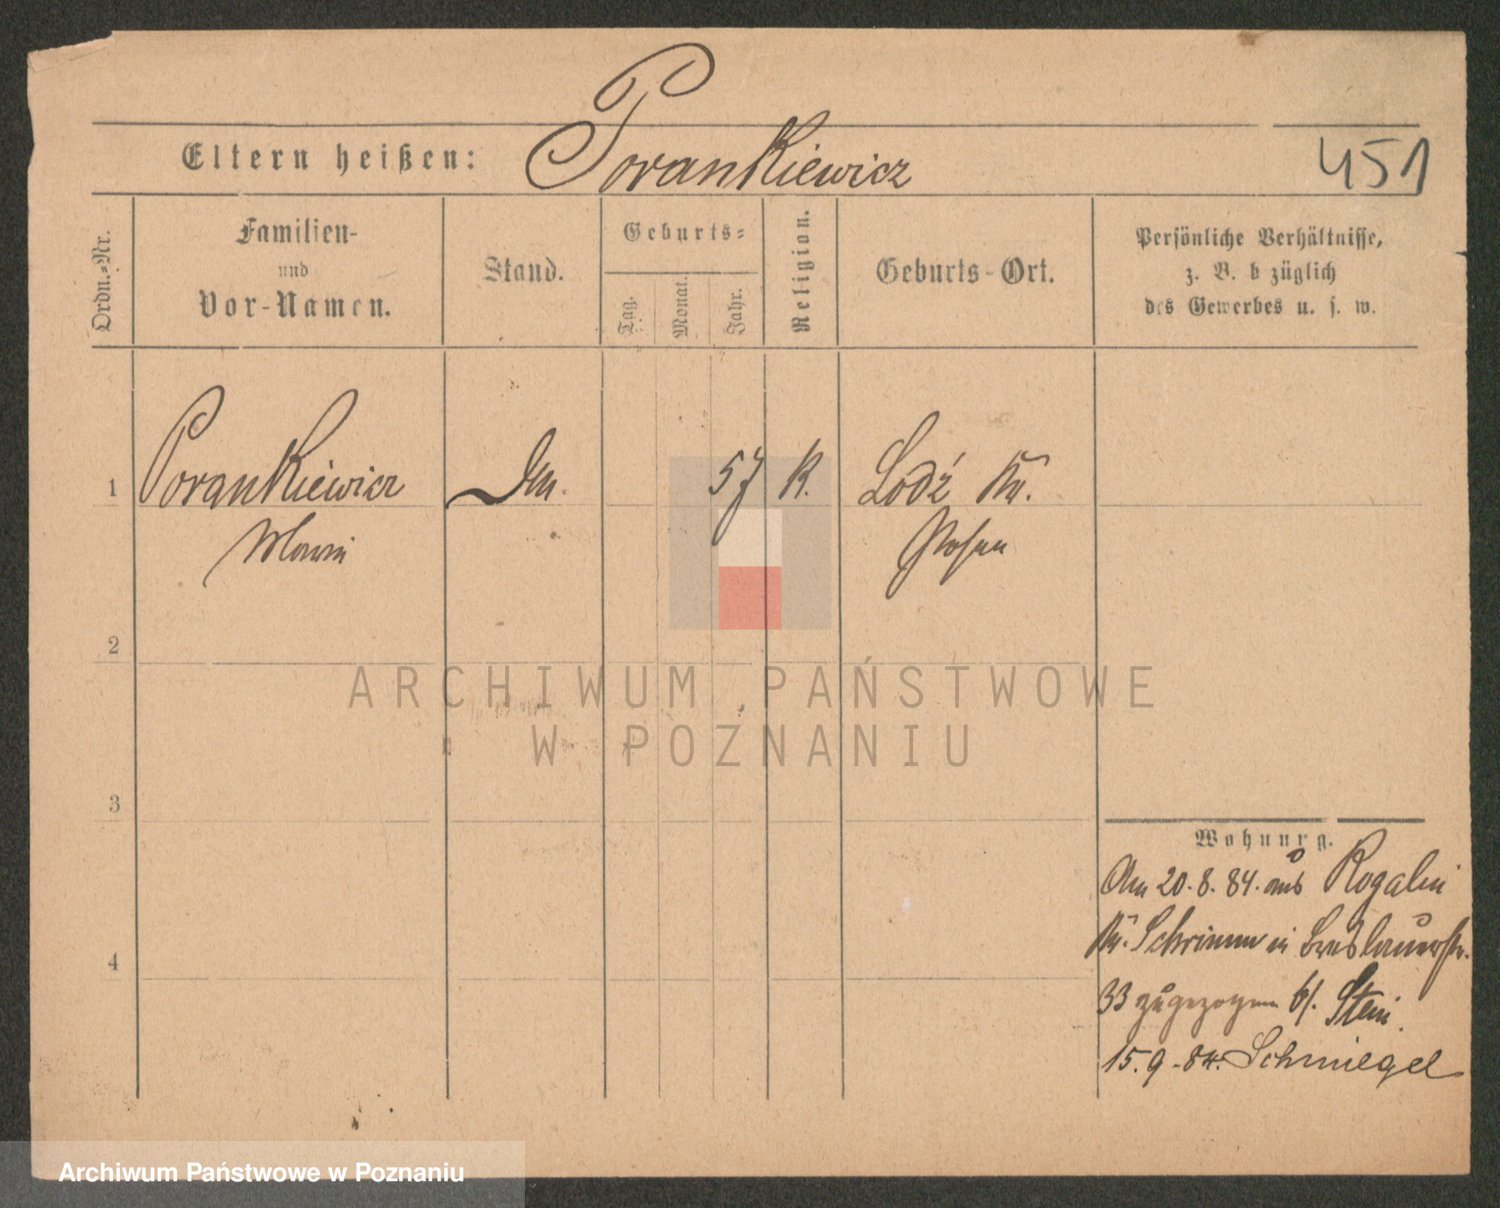 Eltern heißen: Porankiewicz
451
Ordn.-Nr.
Familien-
und
Vor-Namen.
Stand.
Geburts-
Tag.
Monat.
Jahr.
Religion.
Geburts-Ort.
Persönliche Verhältnisse,
z. B. b züglich
des Gewerbes u. s. w.
1 Porankiewicz 57 K. Lodź Kr.
Posen
2
ARCHIWUM PAŃSTWOWE
W POZNANIU
3
Wohnung.
Am 20. 8. 84. aus Rogalin
Kr. Schrimm in Breslauerstr.
4
33 zugezogen b/. Stein.
15. 9. 84. Schmiegel
Archiwum Państwowe w Poznaniu